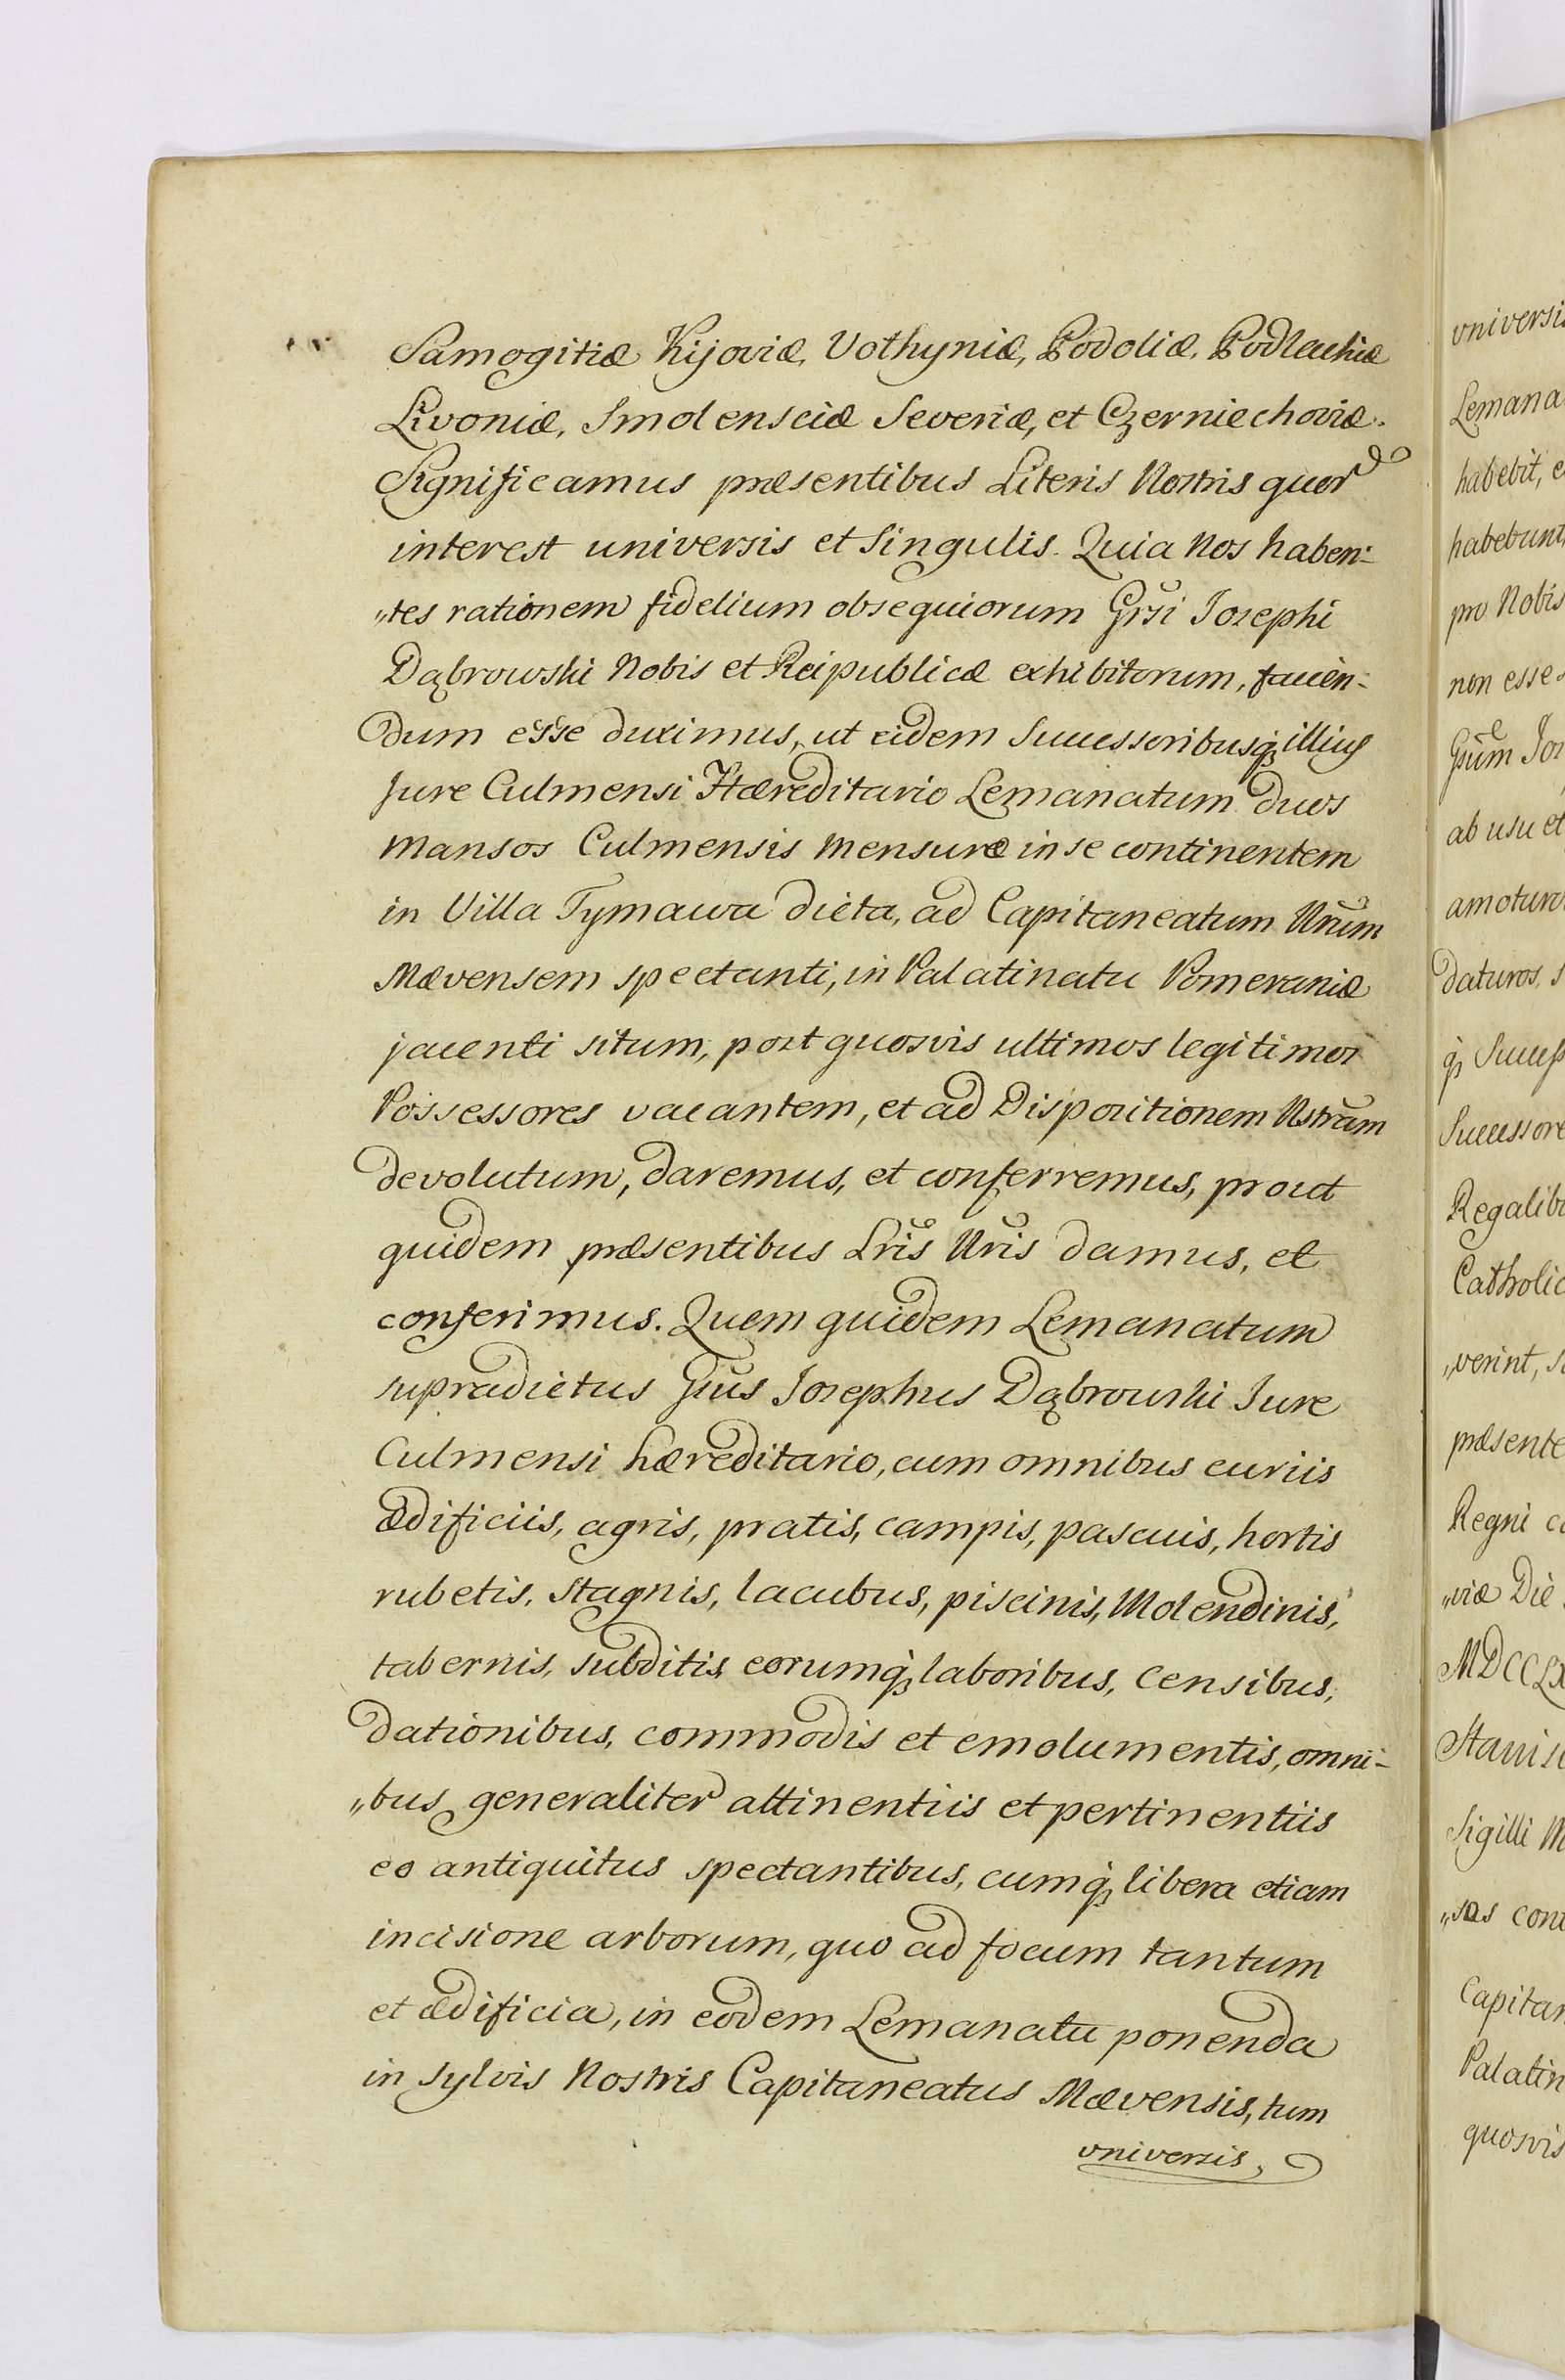 Samogitiæ Kijoviæ, Volhyniæ, Podoliæ, Podlachiæ
Livoniæ, Smolensciæ Severiæ, et Czerniechoviæ.
Significamus præsentibus Literis Nostris quor̃
interest universis et Singulis. Quia Nos haben-
„tes rationem fidelium obsequiorum Grsi Josephi
Dąbrowski Nobis et Reipublicæ exhibitorum, facien-
dum esse duximus, ut eidem Successoribusq; illius
Jure Culmensi Hæreditario Lemanatum duos
Mansos Culmensis Mensuræ in se continentem
in Villa Tymawa dicta, ad Capitaneatum Nrum
Mævensem spectanti, in Palatinatu Pomeraniæ
jacenti situm, post quosvis ultimos legitimos
Possessores vacantem, et ad Dispositionem Nstram
devolutum, daremus, et conferremus, prout
quidem præsentibus Lris Nris damus, et
conferimus. Quem quidem Lemanatum
supradictus Gsus Josephus Dąbrowski Jure
Culmensi hæreditario, cum omnibus curiis
ædificiis, agris, pratis, campis, pascuis, hortis
rubetis, stagnis, lacubus, piscinis, Molendinis,
tabernis, subditis eorumq; laboribus, censibus,
dationibus, commodis et emolumentis, omni-
„bus generaliter attinentiis et pertinentiis
eo antiquitus spectantibus, cumq; libera etiam
incisione arborum, quo ad focum tantum
et ædificia, in eodem Lemanatu ponenda
in sylvis Nostris Capitaneatus Mævensis, tum
universis,
universis
Lemana
habebit, e
habebunt,
pro Nobis
non esse
Gsum Jos
ab usu et
amotur
daturos, s
q; Success
Successore
Regalib
Catholic
„verint, s
præsente
Regni c
„viæ Die
MDCCLX
Stanis
Sigilli M
„sas cont
Capitan
Palatin
quosvis